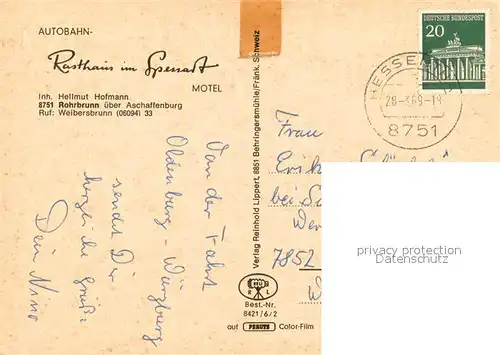 AUTOBAHN-
Rasthaus im Spessart
MOTEL
Inh. Hellmut Hofmann
8751 Rohrbrunn über Aschaffenburg
Ruf: Weibersbrunn (06094) 33
Von der Fahrt
Oldenburg - Würzburg
sendet Dir
herzliche Grüße
Dein Nino
Verlag Reinhold Lippert, 8851 Behringersmühle/Fränk. Schweiz
R L
Best.-Nr.
8421/6/2
auf PERUTZ Color-Film
DEUTSCHE BUNDESPOST
20
HESSE
28-3.69-19
8751
Frau
Erik
bei
7852
privacy protection
Datenschutz